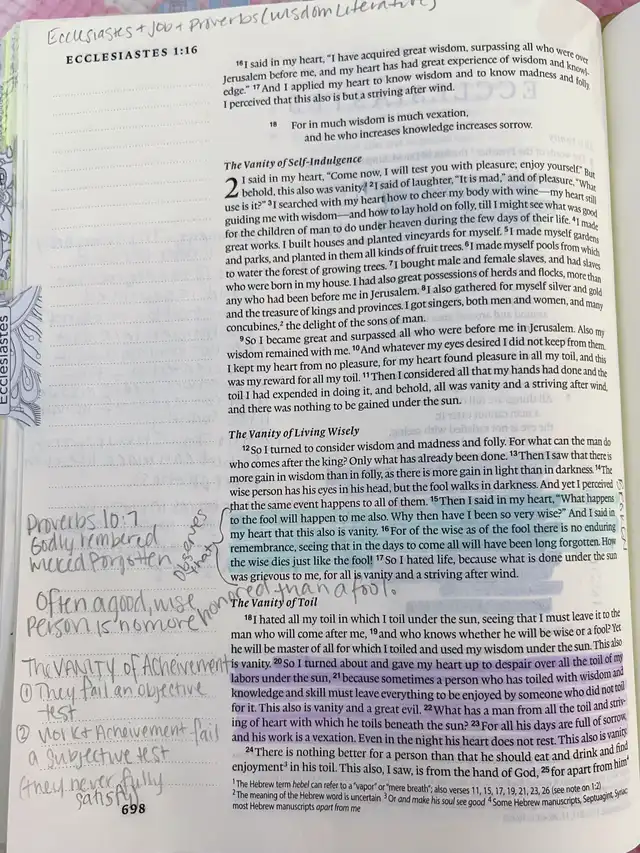 Ecclesiastes + Job + Proverbs (Wisdom Literature)
ECCLESIASTES 1:16
16 I said in my heart, “I have acquired great wisdom, surpassing all who were over
Jerusalem before me, and my heart has had great experience of wisdom and knowl-
edge.” 17 And I applied my heart to know wisdom and to know madness and folly.
I perceived that this also is but a striving after wind.
18 For in much wisdom is much vexation,
and he who increases knowledge increases sorrow.
The Vanity of Self-Indulgence
2 I said in my heart, “Come now, I will test you with pleasure; enjoy yourself.” But
behold, this also was vanity.1 2 I said of laughter, “It is mad,” and of pleasure, “What
use is it?” 3 I searched with my heart how to cheer my body with wine—my heart still
guiding me with wisdom—and how to lay hold on folly, till I might see what was good
for the children of man to do under heaven during the few days of their life. 4 I made
great works. I built houses and planted vineyards for myself. 5 I made myself gardens
and parks, and planted in them all kinds of fruit trees. 6 I made myself pools from which
to water the forest of growing trees. 7 I bought male and female slaves, and had slaves
who were born in my house. I had also great possessions of herds and flocks, more than
any who had been before me in Jerusalem. 8 I also gathered for myself silver and gold
and the treasure of kings and provinces. I got singers, both men and women, and many
concubines,2 the delight of the sons of man.
9 So I became great and surpassed all who were before me in Jerusalem. Also my
wisdom remained with me. 10 And whatever my eyes desired I did not keep from them.
I kept my heart from no pleasure, for my heart found pleasure in all my toil, and this
was my reward for all my toil. 11 Then I considered all that my hands had done and the
toil I had expended in doing it, and behold, all was vanity and a striving after wind,
and there was nothing to be gained under the sun.
Ecclesiastes
The Vanity of Living Wisely
12 So I turned to consider wisdom and madness and folly. For what can the man do
who comes after the king? Only what has already been done. 13 Then I saw that there is
more gain in wisdom than in folly, as there is more gain in light than in darkness. 14 The
wise person has his eyes in his head, but the fool walks in darkness. And yet I perceived
that the same event happens to all of them. 15 Then I said in my heart, “What happens
to the fool will happen to me also. Why then have I been so very wise?” And I said in
my heart that this also is vanity. 16 For of the wise as of the fool there is no enduring
remembrance, seeing that in the days to come all will have been long forgotten. How
the wise dies just like the fool! 17 So I hated life, because what is done under the sun
was grievous to me, for all is vanity and a striving after wind.
Proverbs 10:7
Godly rembered
wicked forgotten
Observes
that
Often a good, wise
person is no more honored than a fool.
The Vanity of Toil
18 I hated all my toil in which I toil under the sun, seeing that I must leave it to the
man who will come after me, 19 and who knows whether he will be wise or a fool? Yet
he will be master of all for which I toiled and used my wisdom under the sun. This also
is vanity. 20 So I turned about and gave my heart up to despair over all the toil of my
labors under the sun, 21 because sometimes a person who has toiled with wisdom and
knowledge and skill must leave everything to be enjoyed by someone who did not toil
for it. This also is vanity and a great evil. 22 What has a man from all the toil and striv-
ing of heart with which he toils beneath the sun? 23 For all his days are full of sorrow,
and his work is a vexation. Even in the night his heart does not rest. This also is vanity.
24 There is nothing better for a person than that he should eat and drink and find
enjoyment3 in his toil. This also, I saw, is from the hand of God, 25 for apart from him4
The VANITY of Acheivement
① They fail an objective
test
② Work + Acheivement fail
a subjective test
(they never fully
satisfy)
1 The Hebrew term hebel can refer to a “vapor” or “mere breath”; also verses 11, 15, 17, 19, 21, 23, 26 (see note on 1:2)
2 The meaning of the Hebrew word is uncertain 3 Or and make his soul see good 4 Some Hebrew manuscripts, Septuagint, Syriac;
most Hebrew manuscripts apart from me
698